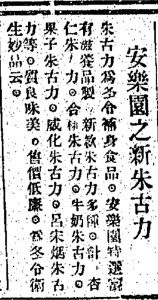 安樂園之新朱古力
朱古力爲冬令補身食品。安樂園特選富
有滋養品製新款朱古力多種。計。杏
仁朱古力。合桃朱古力。牛奶朱古力。
果子朱古力。威化朱古力。呂宋烟朱古
力等。質良味美。售價低廉。爲冬令衛
生妙品云。